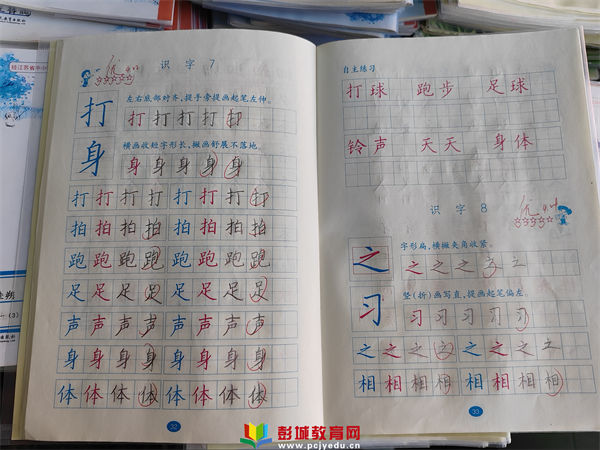 识字7
优
左右底部对齐,提手旁提画起笔左伸。
打 打打打打打
横画收短字形长,撇画舒展不落地。
身 身身身身身
打打打打打打打打
拍拍拍拍拍拍拍拍
跑跑跑跑跑跑跑跑
足足足足足足足足
声声声声声声声声
身身身身身身身身
体体体体体体体体
32
自主练习
打球 跑步 足球
铃声 天天 身体
识字8
优
字形扁,横撇夹角收紧。
之 之之之之之
竖(折)画写直,提画起笔偏左。
习 习习习习习
之之之之之之之之
相相相相相相相相
33
(3)
彭城教育网
www.pcjyedu.cn